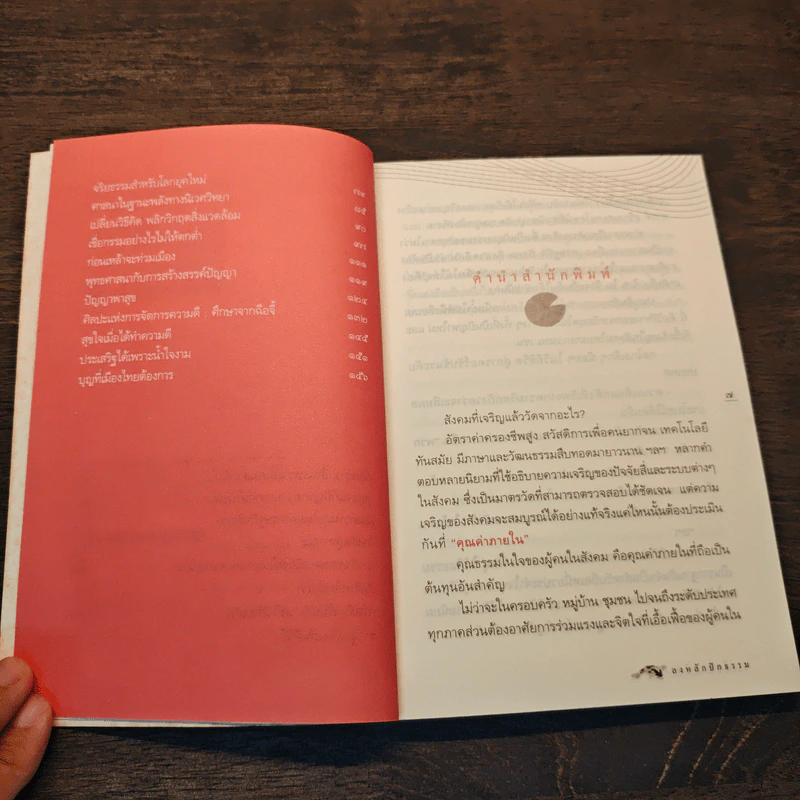 จริยธรรมสำหรับโลกยุคใหม่ ๗๙
ศาสนาในฐานะพลังทางนิเวศวิทยา ๘๕
เปลี่ยนวิธีคิด พลิกวิกฤตสิ่งแวดล้อม ๙๐
เชื่อกรรมอย่างไรไม่ให้ตกต่ำ ๙๗
ก่อนเหล้าจะท่วมเมือง ๑๑๑
พุทธศาสนากับการสร้างสรรค์ปัญญา ๑๑๙
ปัญญาพาสุข ๑๒๔
ศิลปะแห่งการจัดการความดี : ศึกษาจากฉือจี้ ๑๓๒
สุขใจเมื่อได้ทำความดี ๑๔๕
ประเสริฐได้เพราะน้ำใจงาม ๑๕๑
บุญที่เมืองไทยต้องการ ๑๕๖
คำนำสำนักพิมพ์
๗
สังคมที่เจริญแล้ววัดจากอะไร?
อัตราค่าครองชีพสูง สวัสดิการเพื่อคนยากจน เทคโนโลยี
ทันสมัย มีภาษาและวัฒนธรรมสืบทอดมายาวนาน ฯลฯ หลากคำ
ตอบหลายนิยามที่ใช้อธิบายความเจริญของปัจจัยสี่และระบบต่างๆ
ในสังคม ซึ่งเป็นมาตรวัดที่สามารถตรวจสอบได้ชัดเจน แต่ความ
เจริญของสังคมจะสมบูรณ์ได้อย่างแท้จริงแค่ไหนนั้นต้องประเมิน
กันที่ “คุณค่าภายใน”
คุณธรรมในใจของผู้คนในสังคม คือคุณค่าภายในที่ถือเป็น
ต้นทุนอันสำคัญ
ไม่ว่าจะในครอบครัว หมู่บ้าน ชุมชน ไปจนถึงระดับประเทศ
ทุกภาคส่วนต้องอาศัยการร่วมแรงและจิตใจที่เอื้อเฟื้อของผู้คนใน
ลงหลักปักธรรม